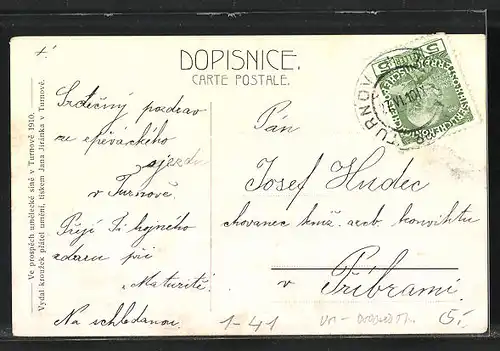 DOPISNICE.
CARTE POSTALE.
Ve prospěch umělecké síně v Turnově 1910.
Vydal kroužek přátel umění, tiskem Jana Jiránka v Turnově.
Srdečný pozdrav
ze pěveckého
sjezdu
v Turnově.
Přeji Ti hojného
zdaru při
„Maturitě"
Na shledanou.
Pán
Josef Hudec
chovanec kníž. arcb. konviktu
v Příbrami
TURNOV
1-41
5,-